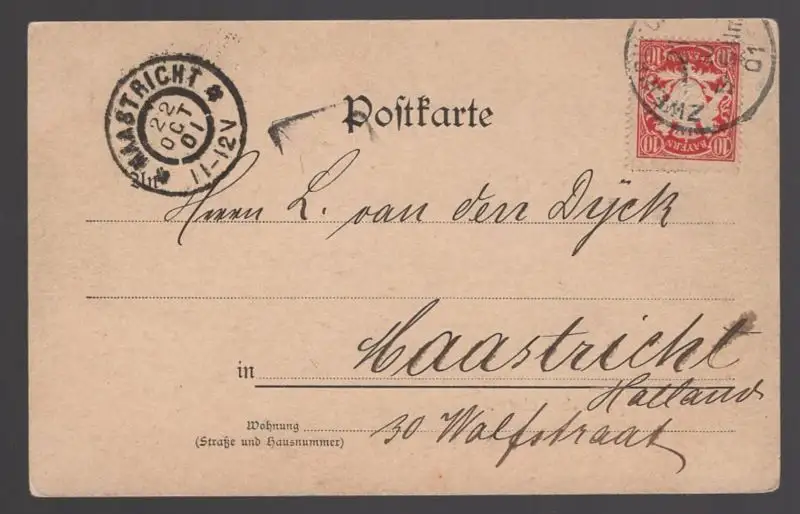 MAASTRICHT
22
OCT
01
11-12V
Postkarte
10 10
BAYERN
10 10
01
Herrn L. van den Dÿck
in Maastricht
Holland
Wohnung
(Straße und Hausnummer)
30 Wolfstraat